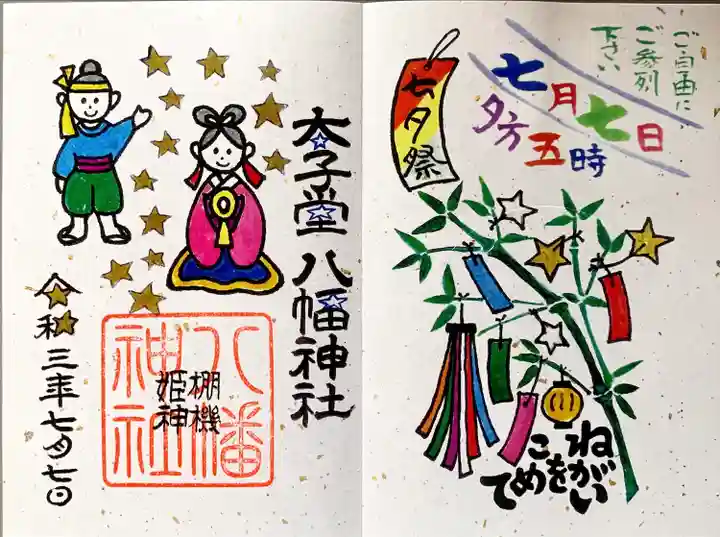 ご自由に
ご参列
下さい
七月七日
夕方五時
七夕祭
ねがい
をこめ
て
太子堂八幡神社
八幡
神社
棚機
姫神
令和三年七月七日